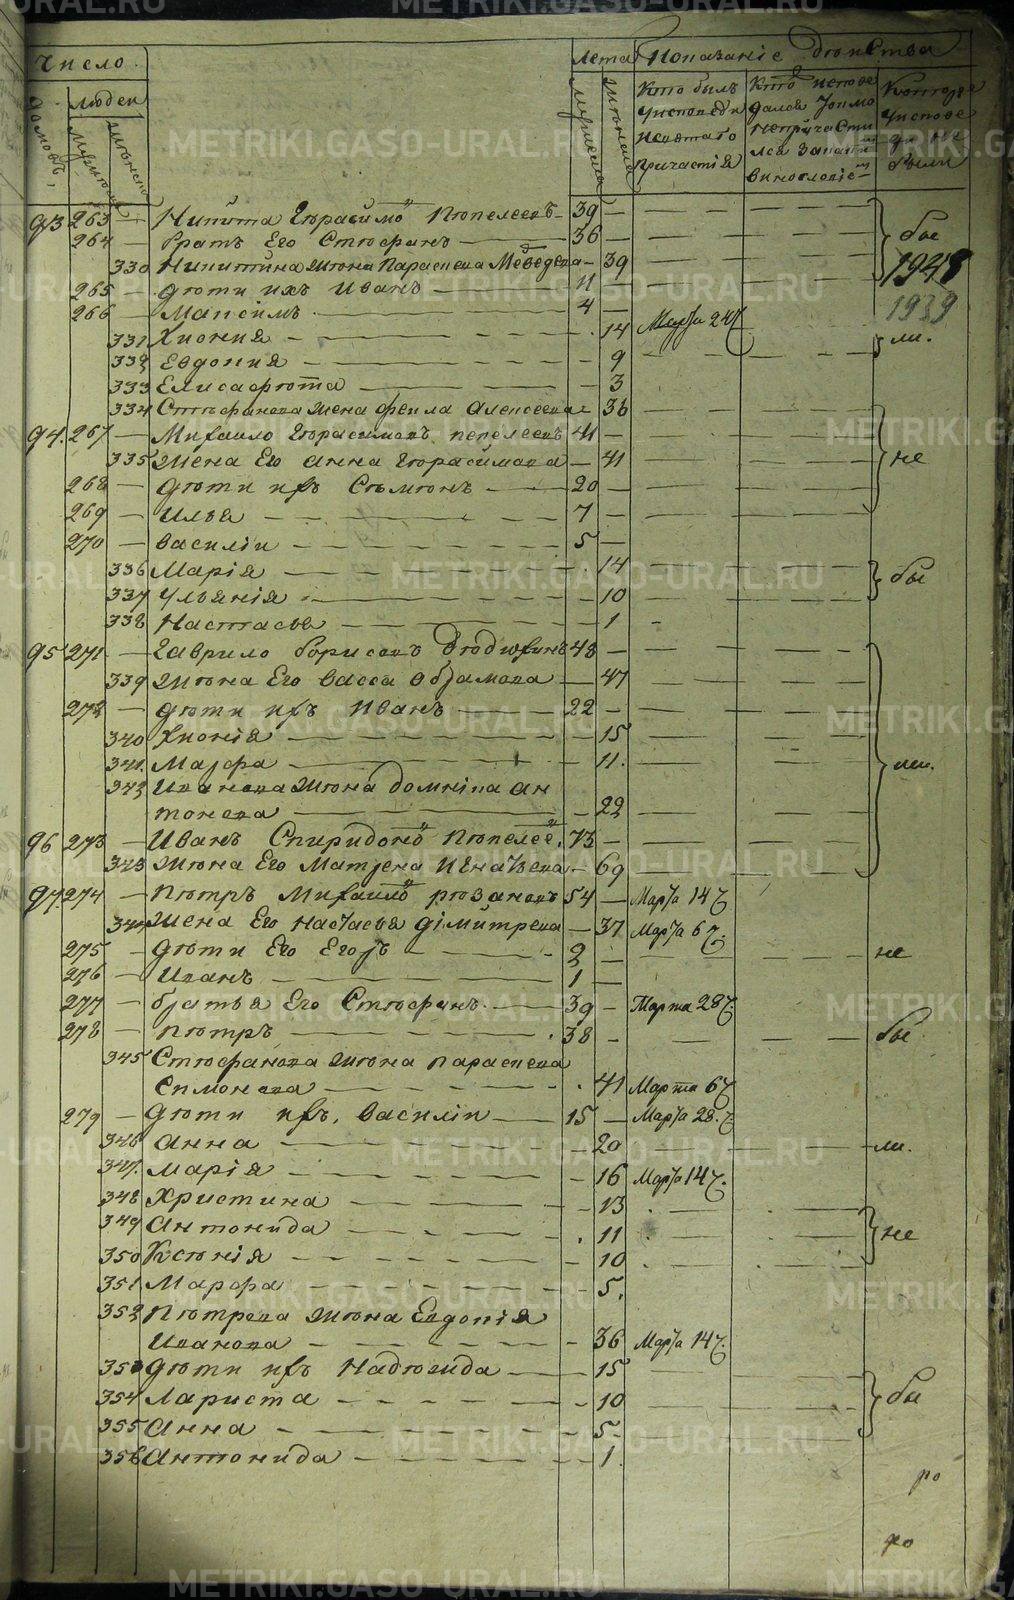 Число
Лета
Показанiе двиства
домовъ,
людей
мужеска
женска
мужеска
женска
Кто былъ
Уисповеди
исвятаго
причастiя
Кто испове
дался Токмо
Непричасти
лся Запаки
виносло
Которые
Уиспове
ди не
были
93 263 — Никита Герасимо Пепелеевъ — 39 —
264 — братъ Его Стефанъ — 36 —
бы
330 Никитина жена Параскева Медведева — 39
1948
265 — дети ихъ Иванъ — 11
266 — Максимъ — 4 —
1939
331 Хиония — 14 Марта 24
332 Евдокия — 9
ли.
333 Елисафета — 3
334 Стефанова жена фекла Алексеева — 36
94. 267 — Михаило Герасимовъ пепелеевъ 41 —
335 жена Его анна герасимова — 41
не
268 — дети ихъ Семенъ — 20 —
269 — илья — 7 —
270 — василiи — 5 —
336 Марiя — 14
бы
337 Ульянiя — 10
338 Настасья — 1
95 271 — Гаврило борисовъ 48 —
339 жена Его васса абрамова — 47
272 — дети ихъ Иванъ — 22 —
340 Хионiя — 15
341. Марфа — 11.
ли.
342 Иванова жена домнiка ан
тонова — 22
96 273 — Иванъ Спиридоно Пепелее. 73 —
343 жена Его Матрена Игнатьева — 69
97. 274 — Петръ Михаило резановъ 54 — Марта 14
344 жена Его настасья дiмитрева — 37 Марта 6
275 — дети Его Егоръ — 2 —
не
276 — Иванъ — 1 —
277 — братья Его Стефанъ — 39 — Марта 28
278 — петръ — 38 —
бы
345 Стефанова жена параскева
Симонова — 41 Марта 6
279 — дети ихъ, василiи — 15 — Марта 28.
346 анна — 20
ли.
347. марiя — 16 Марта 14
348 Христина — 13
349 Антонида — 11
не
350 Ксенiя — 10
351 Марфа — 5.
352 Петрова жена Евдокiя
Иванова — 36 Марта 14
353 дети ихъ Надежида — 15
354 Лариста — 10
бы
355 Анна — 5
356 Антонида — 1
ро
ро
METRIKI.GASO-URAL.RU